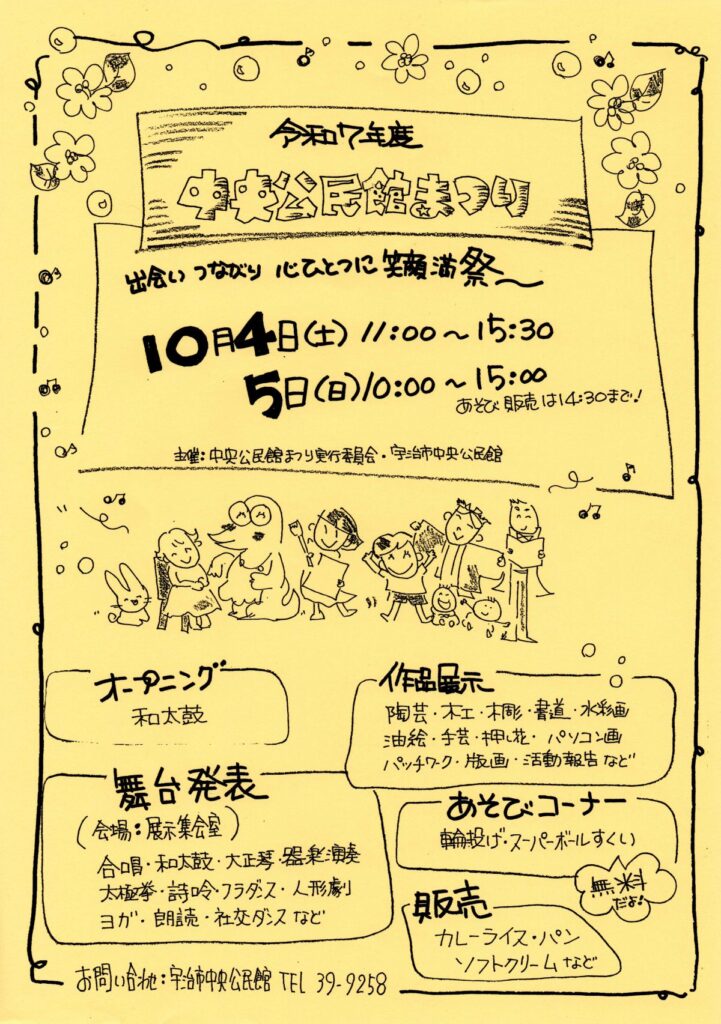 令和7年度
中央公民館まつり
出会い つながり 心ひとつに 笑顔満祭〜
10月4日(土) 11:00〜15:30
5日(日)10:00〜15:00
あそび 販売は14:30まで!
主催:中央公民館まつり実行委員会・宇治市中央公民館
オープニング
和太鼓
作品展示
陶芸・木工・木彫・書道・水彩画
油絵・手芸・押し花・パソコン画
パッチワーク・版画・活動報告など
舞台発表
(会場:展示集会室)
合唱・和太鼓・大正琴・器楽演奏
太極拳・詩吟・フラダンス・人形劇
ヨガ・朗読・社交ダンスなど
あそびコーナー
輪投げ・スーパーボールすくい
無料
だよ!
販売
カレーライス・パン
ソフトクリームなど
お問い合わせ:宇治市中央公民館 TEL 39-9258